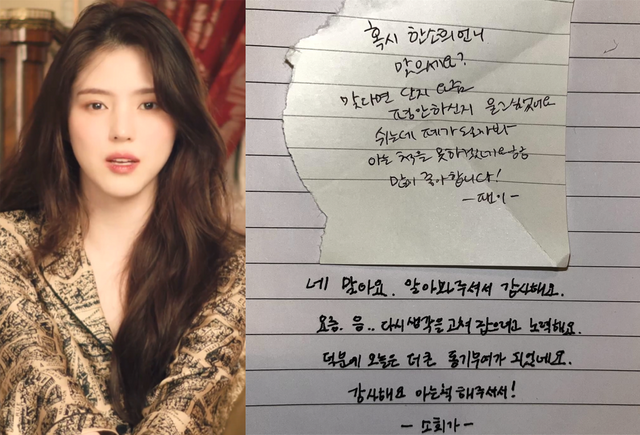 혹시 한소희언니
맞으세요?
맞다면 단지 요즘
평안하신지 묻고싶었네요
쉬는데 폐가 될까봐
아는 척을 못하겠네요ㅎㅎ
많이 좋아합니다!
-팬이-
네 맞아요. 알아봐주셔서 감사해요.
요즘. 음.. 다시 생각을 고쳐 잡으려고 노력해요.
덕분에 오늘은 더 큰 동기부여가 되었네요.
감사해요 아는척 해주셔서!
-소희가-